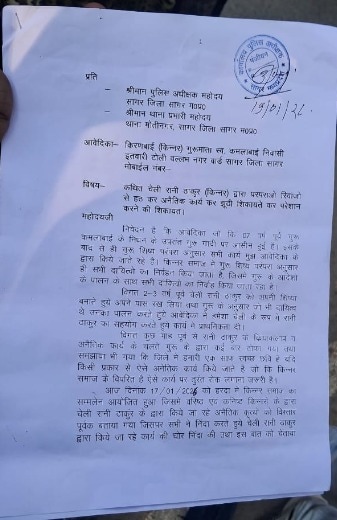 प्रति
- श्रीमान पुलिस अधीक्षक महोदय
सागर जिला सागर म0प्र0
- श्रीमान थाना प्रभारी महोदय
थाना मोतीनगर, सागर जिला सागर म0प्र0
आवेदिका- किरणबाई (किन्नर) गुरूमाता स्व. कमलाबाई निवासी
इतवारी टोली वल्लभ नगर वार्ड सागर जिला सागर
मोबाईल नंबर-
विषय- कथित चेली रानी ठाकुर (किन्नर) द्वारा परंपराओ रिवाजो
से हट कर अनैतिक कार्य कर झूठी शिकायते कर परेशान
करने की शिकायत।
महोदयजी
निवेदन है कि आवेदिका जो कि 07 वर्ष पूर्व गुरू
कमलाबाई के निधन के उपरांत गुरू गादी पर आसीन हुई है। इसके
बाद से ही गुरू शिष्य परंपरा अनुसार सभी कार्य मुझ आवेदिका के
द्वारा किये जाते रहे है। किन्नर समाज में गुरू शिष्य परंपरा अनुसार
ही सभी दायित्वो का निर्वहन किया जाता है, जिसमे गुरू के आदेशो
के पालन के साथ सभी दायित्वो का निर्वाह किया जाता रहा है।
विगत 2-3 वर्ष पूर्व चेली रानी ठाकुर को अपनी शिष्या
बनाते हुये अपने पास रख लिया तथा गुरू के अनुसार जो भी दायित्व
थे उनका पालन करते हुये आवेदिका ने हमेशा चेली के रूप में रानी
ठाकुर का सहयोग करते हुये कार्य में प्राथमिकता दी।
विगत कुछ माह पूर्व से रानी ठाकुर के क्रियाकलाप व
अनैतिक कार्य के चलते गुरू के द्वारा कई बार टोका गया तथा
समझाया भी गया कि जिले में हमारी एक साफ स्वच्छ छवि है यदि
किसी प्रकार से ऐसे अनैतिक कार्य किये जाते है जो कि किन्नर
समाज के विपरित है ऐसे कार्य पर तुरंत रोक लगाना जरूरी है।
आज दिनांक 17/01/2026 को हरदा में किन्नर समाज का
सम्मेलन आयोजित हुआ जिसमे वरिष्ठ एवं कनिष्ठ किन्नरो के द्वारा
चेली रानी ठाकुर के द्वारा किये जा रहे अनैतिक कृत्यो को विस्तार
पूर्वक बताया गया जिसपर सभी ने निंदा करते हुये चेली रानी ठाकुर
द्वारा किये जा रहे कार्य की घोर निंदा की तथा इस बात को चेताया